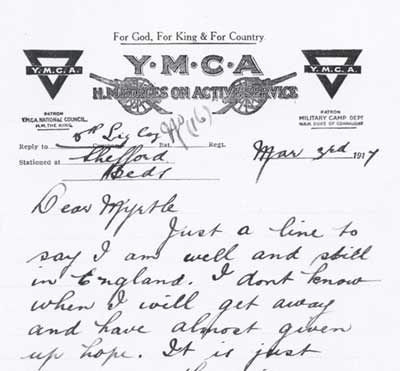 For God, For King & For Country.
Y·M·C·A
H.M. FORCES ON ACTIVE SERVICE
Y.M.C.A.
Y.M.C.A.
PATRON
Y.M.C.A. NATIONAL COUNCIL.
H.M. THE KING.
PATRON
MILITARY CAMP DEPT
H.R.H. DUKE OF CONNAUGHT
(16)
Reply to Sig Coy Bat. Regt.
Stationed at Shefford
Beds
Mar 3rd 1917
Dear Myrtle
Just a line to
say I am well and still
in England. I dont know
when I will get away
and have almost given
up hope. It is just